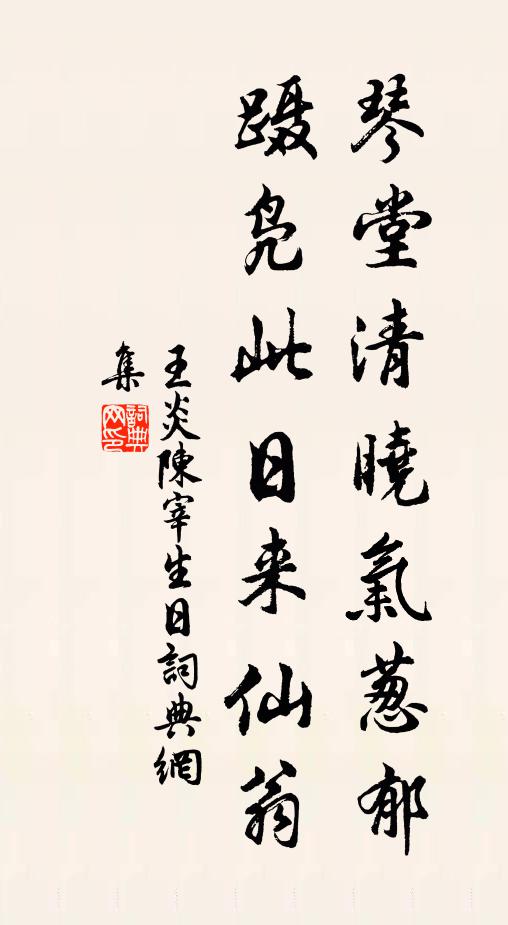 琴堂清曉氣葱郁
蹑凫此日来仙翁
王炎陳宰生日詞典網
集
詞典
网印